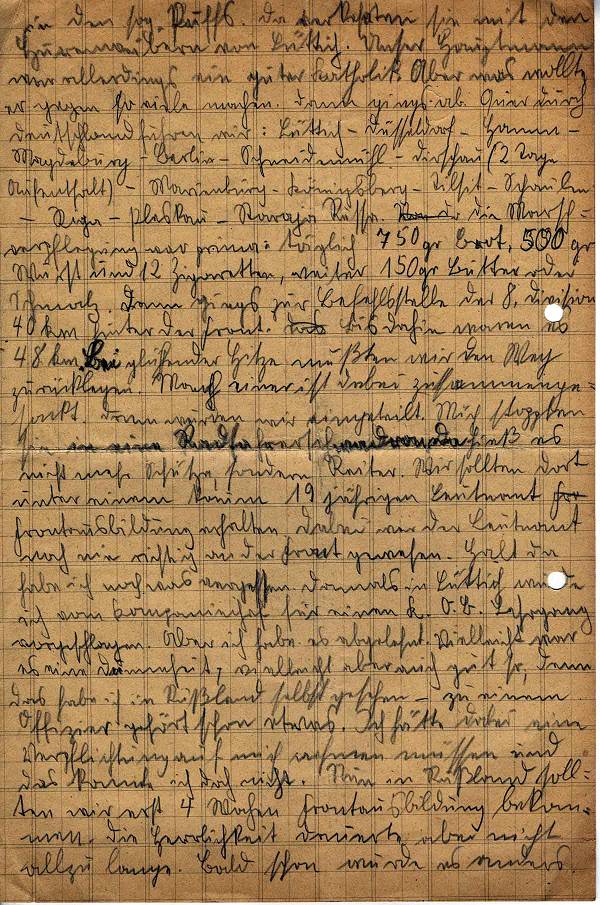 in den sog. Puffs. Da verkehrten sie mit den
Hurenweibern von Lüttich. Unser Hauptmann
war allerdings ein guter Katholik. Aber was wollte
er gegen so viele machen. Dann gings ab. Quer durch
Deutschland fuhren wir: Lüttich – Düsseldorf – Hamm –
Magdeburg – Berlin – Schneidemühl – Dirschau (2 Tage
Aufenthalt) – Marienburg – Königsberg – Tilsit – Schaulen
– Riga – Pleskau – Staraja Russa. die Marsch-
verpflegung war prima: täglich 750 gr Brot, 500 gr
Wurst und 12 Zigaretten, weiter 150 gr Butter oder
Schmalz. Dann gings zur Befehlsstelle der 8. Division
40 km hinter der Front. bis dahin waren es
48 km. Bei glühender Hitze mußten wir den Weg
zurücklegen. Manch einer ist dabei zusammenge-
sackt. Dann wurden wir eingeteilt. Mich stopften
sie in eine Radfahrerschwadron. Da hieß es
nicht mehr Schütze, sondern Reiter. Wir sollten dort
unter einem kaum 19 jährigen Leutnant
Frontausbildung erhalten. Dabei war der Leutnant
noch nie richtig an der Front gewesen. Halt da
habe ich noch was vergessen. Damals in Lüttich wurde
ich vom Kompaniechef für einen K. O. B. Lehrgang
vorgeschlagen. Aber ich habe es abgelehnt. Vielleicht war
es eine Dummheit, vielleicht aber auch gut so, denn
das habe ich in Rußland selbst gesehen – zu einem
Offizier gehört schon etwas. Ich hätte dabei eine
Verpflichtung auf mich nehmen müssen und
das konnte ich doch nicht. Nun in Rußland soll-
ten wir erst 4 Wochen Frontausbildung bekom-
men. Die Herrlichkeit dauerte aber nicht
allzu lange. Bald schon wurde es anders.